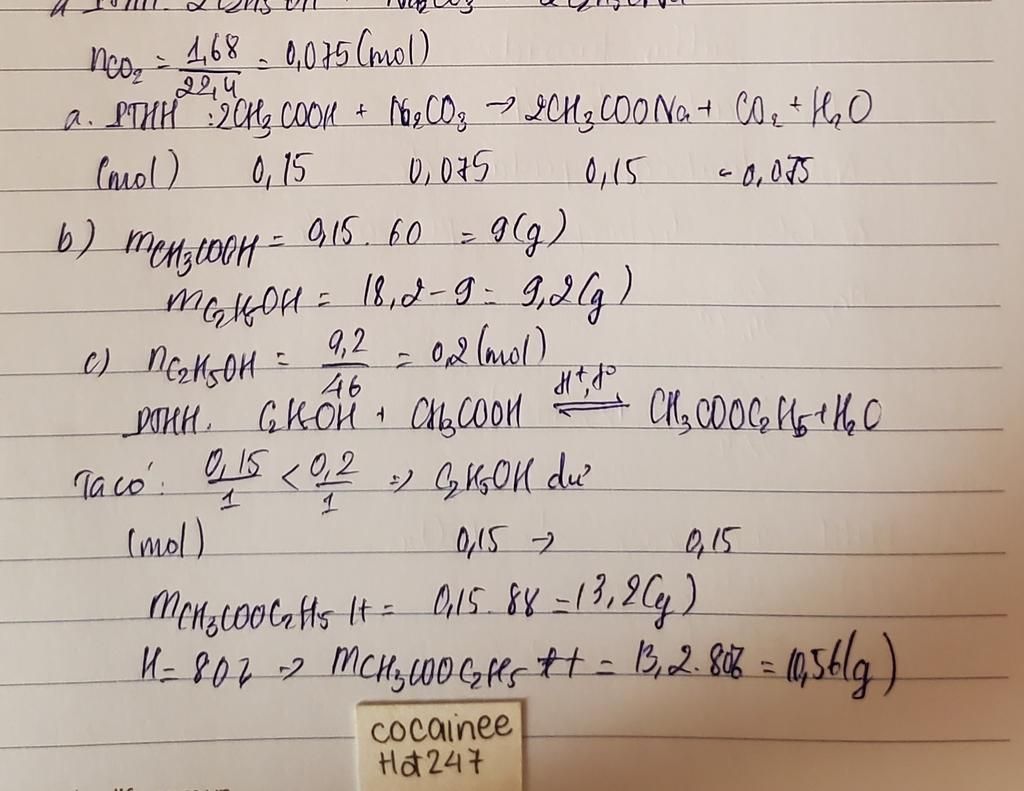 nCO₂ = 1,68/22,4 = 0,075 (mol)
a. PTHH : 2CH₃COOH + Na₂CO₃ → 2CH₃COONa + CO₂ + H₂O
(mol) 0,15 0,075 0,15 ← 0,075
b) mCH₃COOH = 0,15 . 60 = 9(g)
mC₂H₅OH = 18,2 - 9 = 9,2(g)
c) nC₂H₅OH = 9,2/46 = 0,2 (mol)
PTHH. C₂H₅OH + CH₃COOH ⇌ (H⁺, t°) CH₃COOC₂H₅ + H₂O
Ta có: 0,15/1 < 0,2/1 => C₂H₅OH dư
(mol) 0,15 → 0,15
mCH₃COOC₂H₅ lt = 0,15 . 88 = 13,2(g)
H = 80% → mCH₃COOC₂H₅ tt = 13,2 . 80% = 10,56(g)
cocainee
Hot247